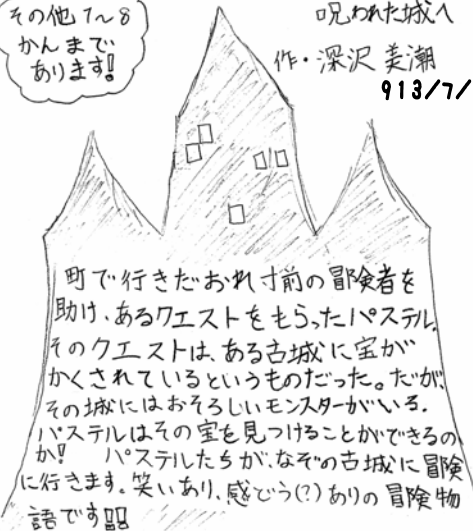 その他 1~8
かんまで
あります!!
呪われた城へ
作・深沢 美潮
913/7/
町で行きだおれ寸前の冒険者を
助け、あるクエストをもらったパステル。
そのクエストは、ある古城に宝が
かくされているというものだった。だが、
その城にはおそろしいモンスターがいる。
パステルはその宝を見つけることができるの
か! パステルたちが、なぞの古城に冒険
に行きます。笑いあり、感どう(?)ありの冒険物
語です!!